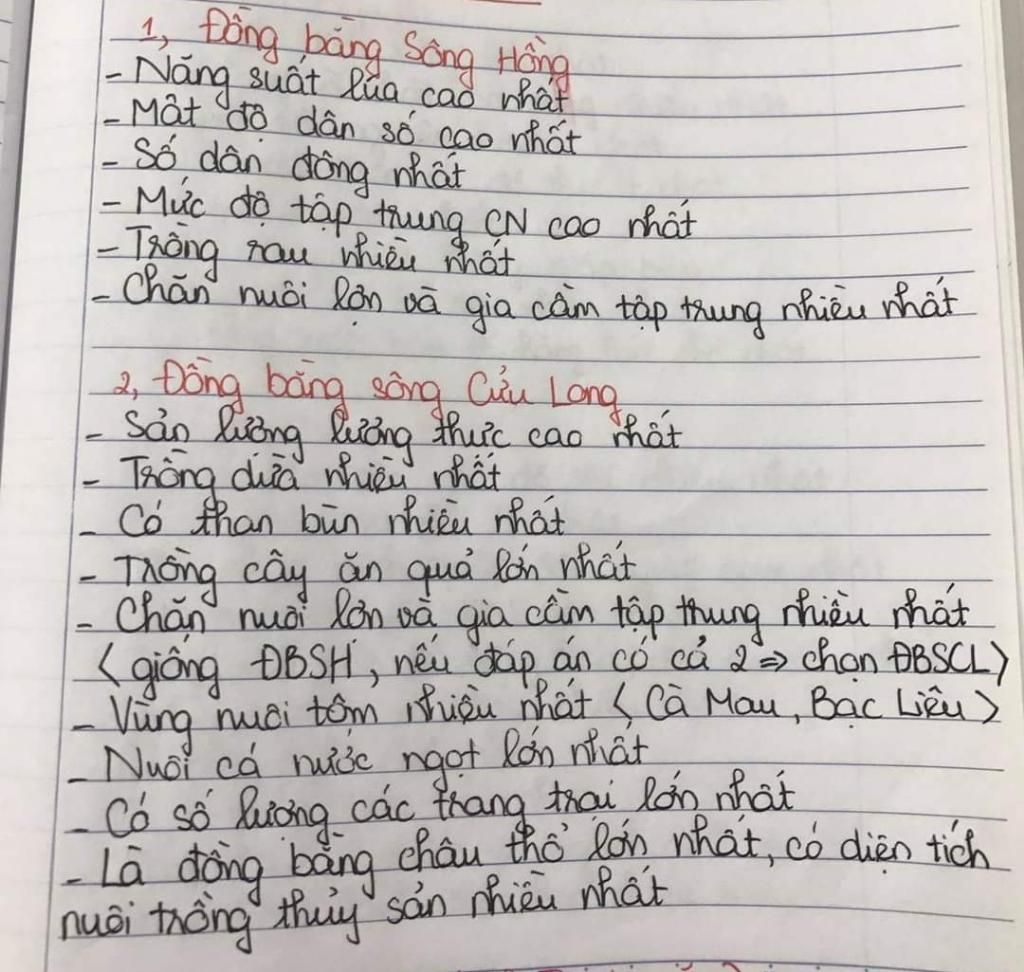 1, Đồng bằng Sông Hồng
- Năng suất lúa cao nhất
- Mật độ dân số cao nhất
- Số dân đông nhất
- Mức độ tập trung CN cao nhất
- Trồng rau nhiều nhất
- Chăn nuôi lợn và gia cầm tập trung nhiều nhất
2, Đồng bằng sông Cửu Long
- Sản lượng lương thực cao nhất
- Trồng dừa nhiều nhất
- Có than bùn nhiều nhất
- Trồng cây ăn quả lớn nhất
- Chăn nuôi lợn và gia cầm tập trung nhiều nhất
(giống ĐBSH, nếu đáp án có cả 2 => chọn ĐBSCL)
- Vùng nuôi tôm nhiều nhất (Cà Mau, Bạc Liêu)
- Nuôi cá nước ngọt lớn nhất
- Có số lượng các trang trại lớn nhất
- Là đồng bằng châu thổ lớn nhất, có diện tích
nuôi trồng thủy sản nhiều nhất